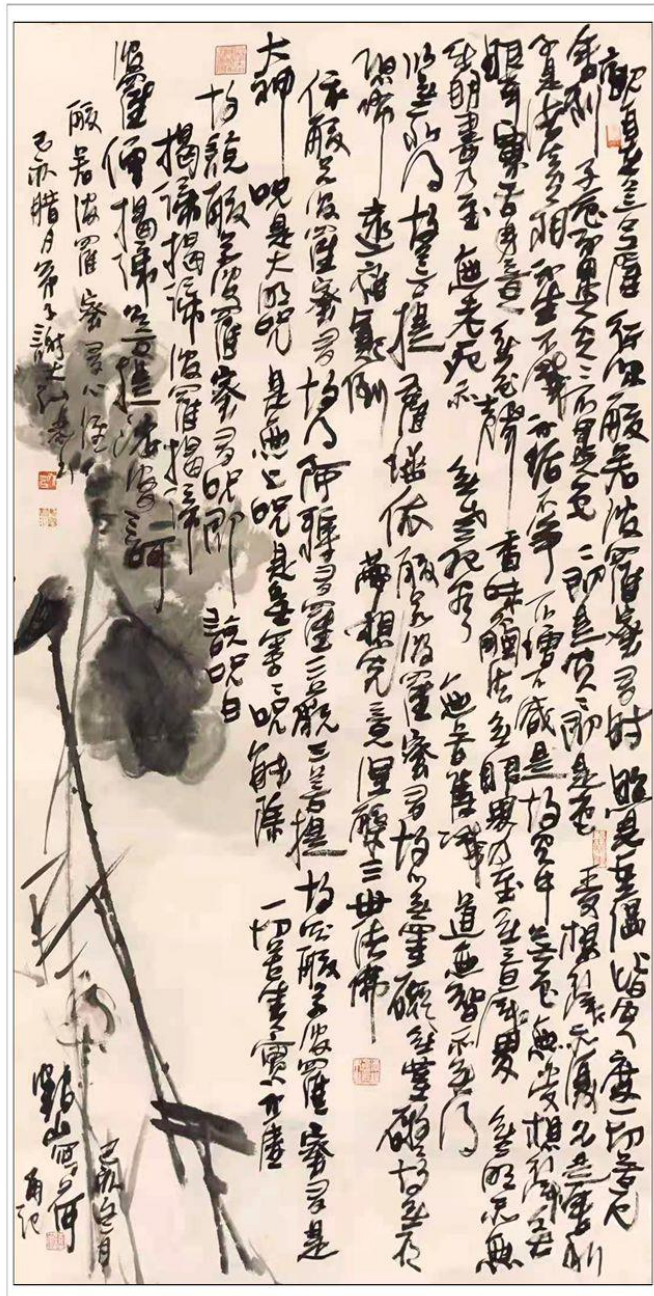 觀自在菩薩行深般若波羅蜜多時照見五蘊皆空度一切苦厄
舍利子色不異空空不異色色即是空空即是色受想行識亦復如是舍利
子是諸法空相不生不滅不垢不淨不增不減是故空中無色無受想行識無
眼耳鼻舌身意無色聲香味觸法無眼界乃至無意識界無無明亦無
無明盡乃至無老死亦無老死盡無苦集滅道無智亦無得
以無所得故菩提薩埵依般若波羅蜜多故心無罣礙無罣礙故無有
恐怖遠離顛倒夢想究竟涅槃三世諸佛
依般若波羅蜜多故得阿耨多羅三藐三菩提故知般若波羅蜜多是
大神咒是大明咒是無上咒是無等等咒能除一切苦真實不虛
故說般若波羅蜜多咒即說咒曰
揭諦揭諦波羅揭諦
波羅僧揭諦菩提薩婆訶
般若波羅蜜多心經
己亥臘月弟子謝大
己亥月
山寫荷